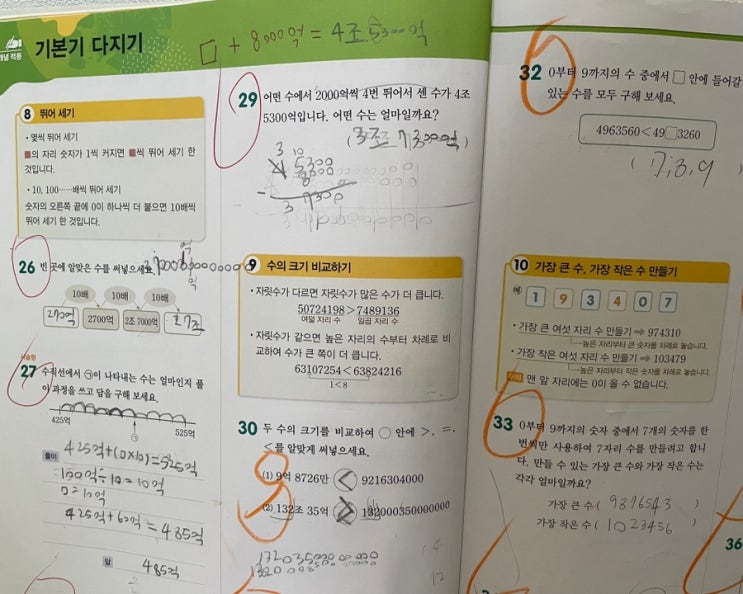 개념 적용
기본기 다지기
□ + 8000억 = 4조 5300억
8 뛰어 세기
• 몇씩 뛰어 세기
■의 자리 숫자가 1씩 커지면 ■씩 뛰어 세기 한
것입니다.
• 10, 100……배씩 뛰어 세기
숫자의 오른쪽 끝에 0이 하나씩 더 붙으면 10배씩
뛰어 세기 한 것입니다.
26 빈 곳에 알맞은 수를 써넣으세요.
10배 10배 10배
270억 2700억 2조 7000억 27조
서술형
27 수직선에서 ㉠이 나타내는 수는 얼마인지 풀
이 과정을 쓰고 답을 구해 보세요.
425억 ㉠ 525억
풀이
425억+(□×10)=525억
100억÷10=10억
□=10억
425억+60억=485억
답 485억
29 어떤 수에서 2000억씩 4번 뛰어서 센 수가 4조
5300억입니다. 어떤 수는 얼마일까요?
( 3조 7300억 )
3 10
4 5300
- 8000
3 7300
9 수의 크기 비교하기
• 자릿수가 다르면 자릿수가 많은 수가 더 큽니다.
50724198 > 7489136
여덟 자리 수 일곱 자리 수
• 자릿수가 같으면 높은 자리의 수부터 차례로 비
교하여 수가 큰 쪽이 더 큽니다.
63107254 < 63824216
1<8
30 두 수의 크기를 비교하여 ○ 안에 >, =,
<를 알맞게 써넣으세요.
(1) 9억 8726만 < 9216304000
(2) 132조 35억 > 132000350000000
32 0부터 9까지의 수 중에서 □ 안에 들어갈
있는 수를 모두 구해 보세요.
4963560 < 49□3260
( 7, 8, 9 )
10 가장 큰 수, 가장 작은 수 만들기
예 1 9 3 4 0 7
• 가장 큰 여섯 자리 수 만들기 ⇒ 974310
높은 자리부터 큰 숫자를 차례로 놓습니다.
• 가장 작은 여섯 자리 수 만들기 ⇒ 103479
높은 자리부터 작은 숫자를 차례로 놓습니다.
주의 맨 앞 자리에는 0이 올 수 없습니다.
33 0부터 9까지의 숫자 중에서 7개의 숫자를 한
번씩만 사용하여 7자리 수를 만들려고 합니
다. 만들 수 있는 가장 큰 수와 가장 작은 수는
각각 얼마일까요?
가장 큰 수 ( 9876543 )
가장 작은 수 ( 1023456 )
36